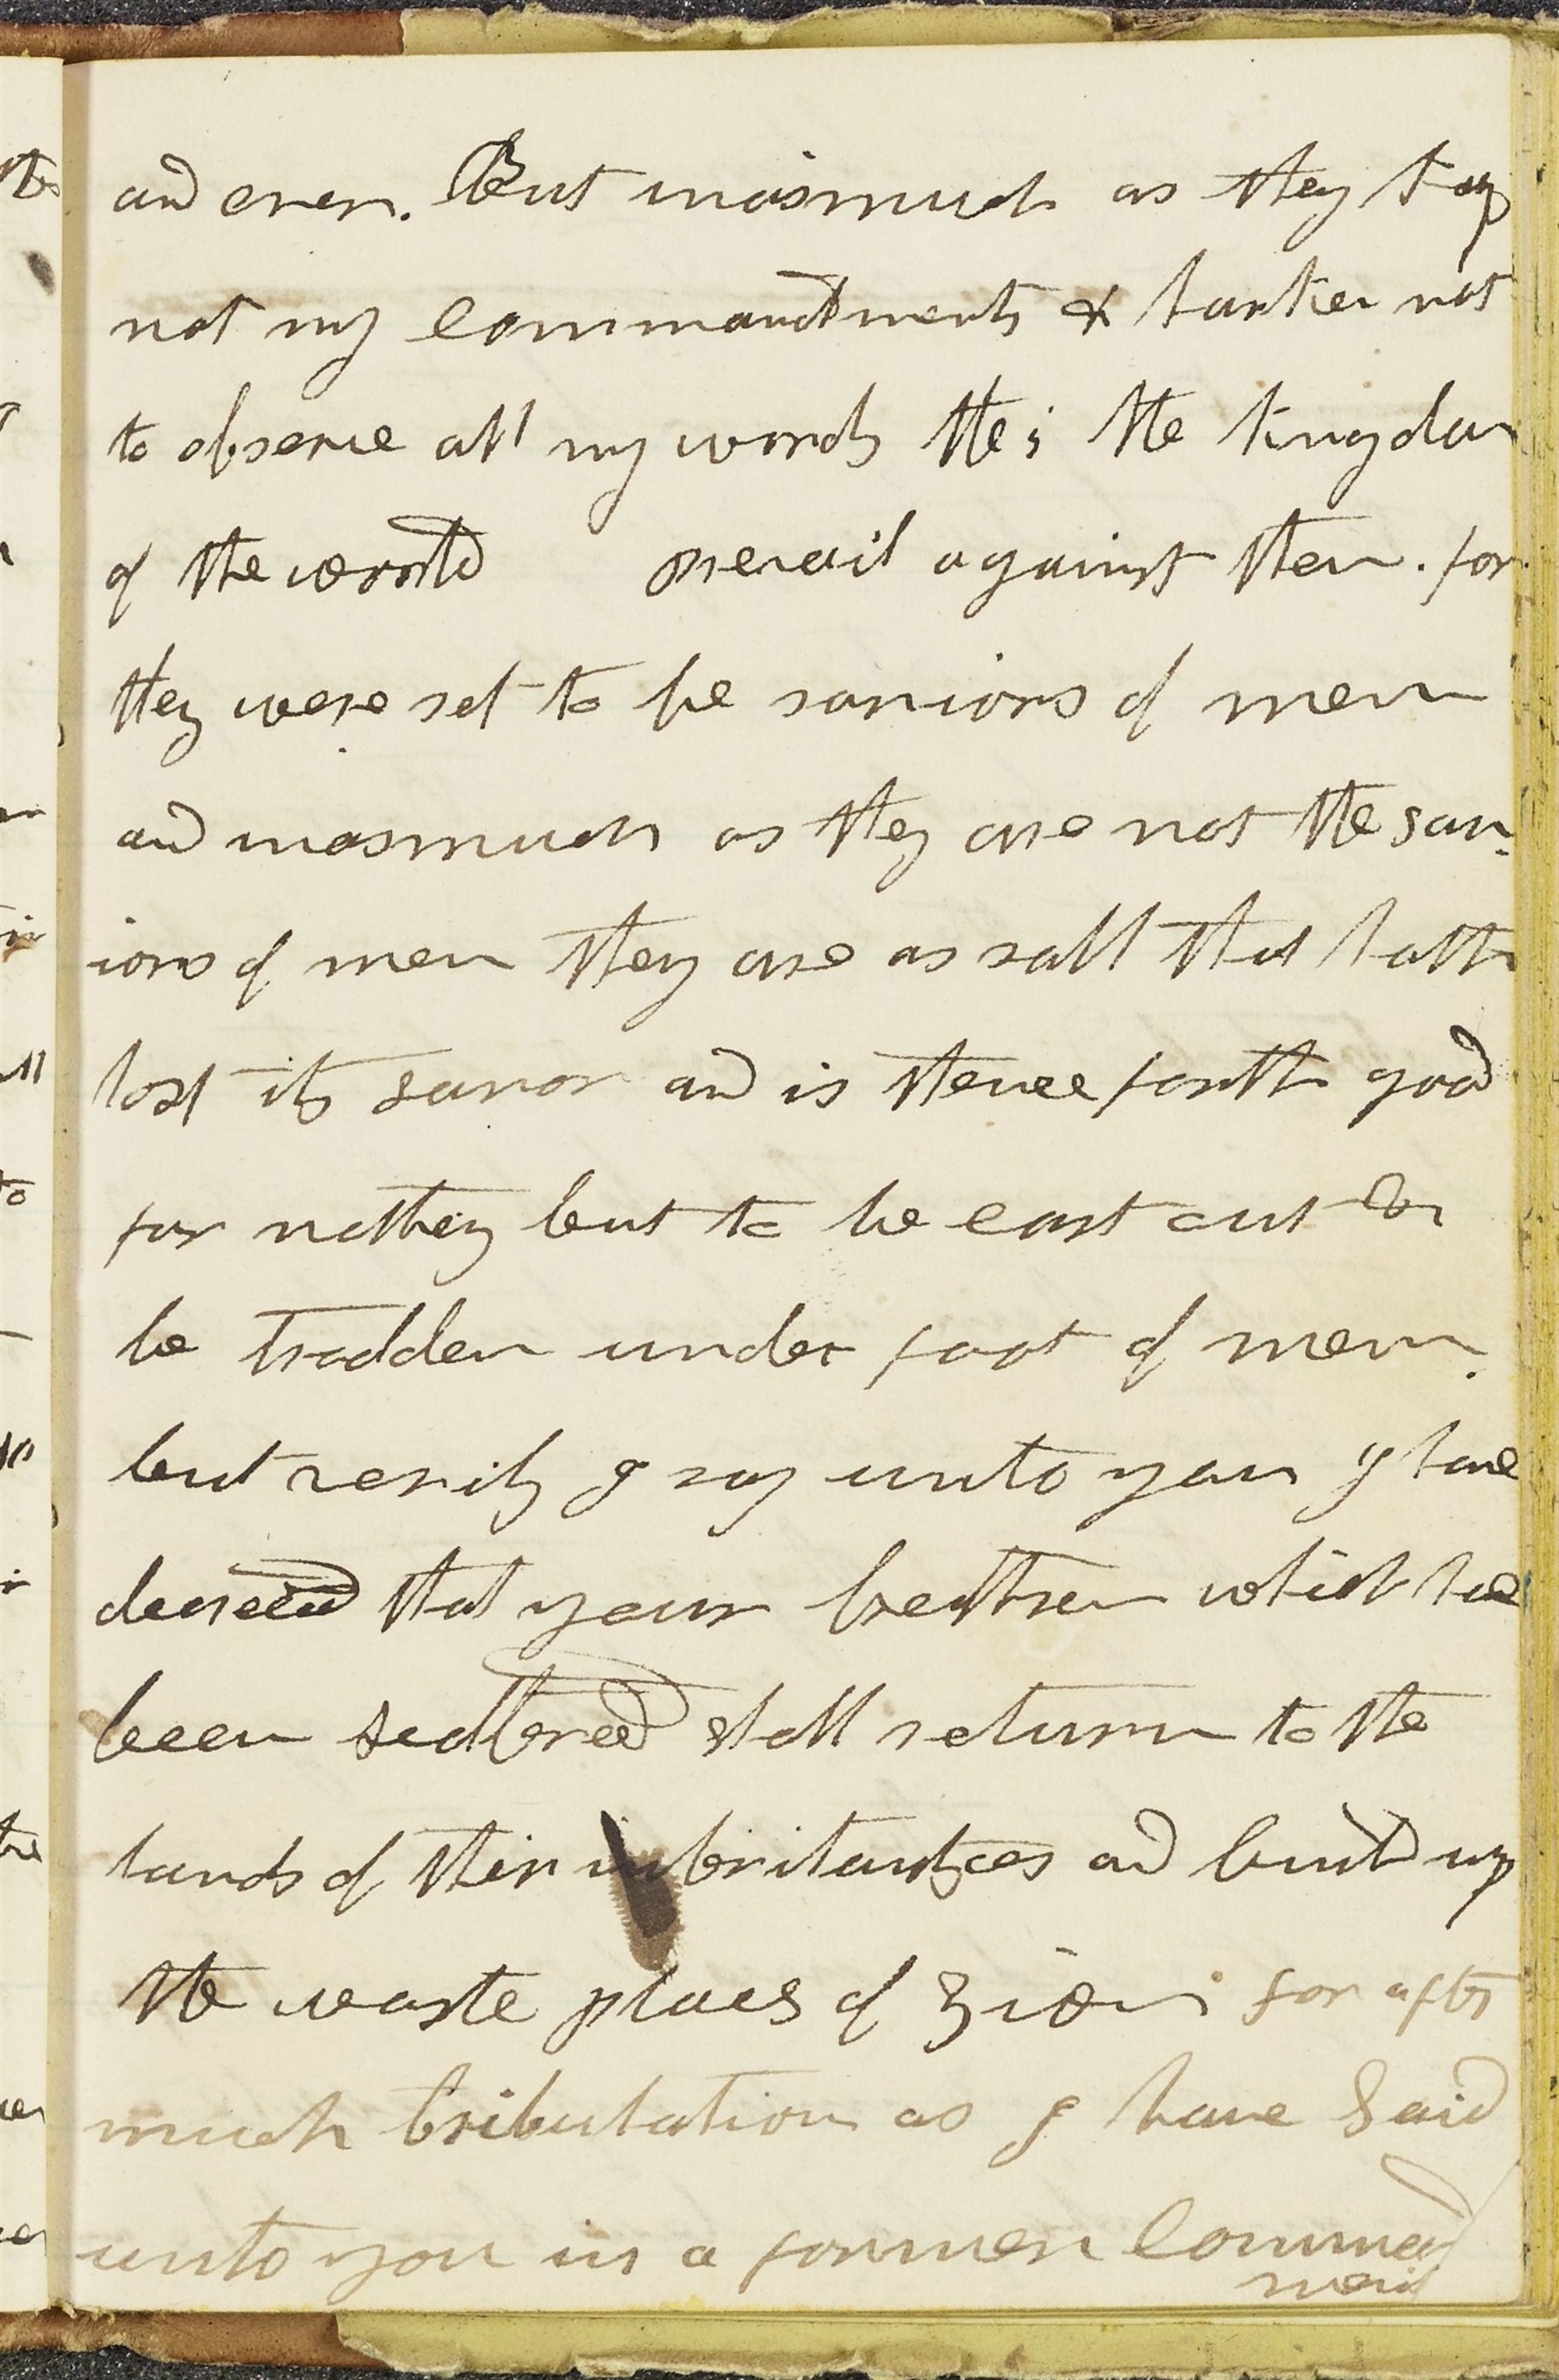 and ever. But inasmuch as they keep
not my commandments & harken not
to observe all my words the; the kingdom
of the world prevail against them. for
they were set to be saviors of men
and inasmuch as they are not the sav-
iors of men they are as salt that hath
lost its savor and is thence forth good
for nothing but to be cast out &
be trodden under foot of men.
but verily I say unto you I have
decreed that your brethren which have
been scattered shall return to the
lands of thir inheritances and build up
the waste places of Zion for after
much tribulation as I have Said
unto you in a former command
ment